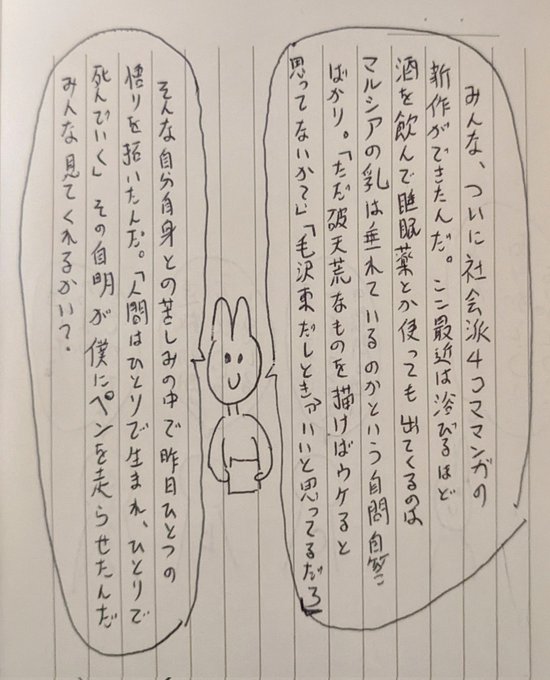 みんな、ついに社会派4コママンガの
新作ができたんだ。ここ最近は浴びるほど
酒を飲んで睡眠薬とか使っても出てくるのは
マルシアの乳は垂れているのかという自問自答
ばかり。「ただ破天荒なものを描けばウケると
思ってないかて」「毛沢東だしときゃいいと思ってるだろ」
そんな自分自身との苦しみの中で昨日ひとつの
悟りを拓いたんだ。「人間はひとりで生まれ、ひとりで
死んでいく」その自明が僕にペンを走らせたんだ
みんな見てくれるかい？.